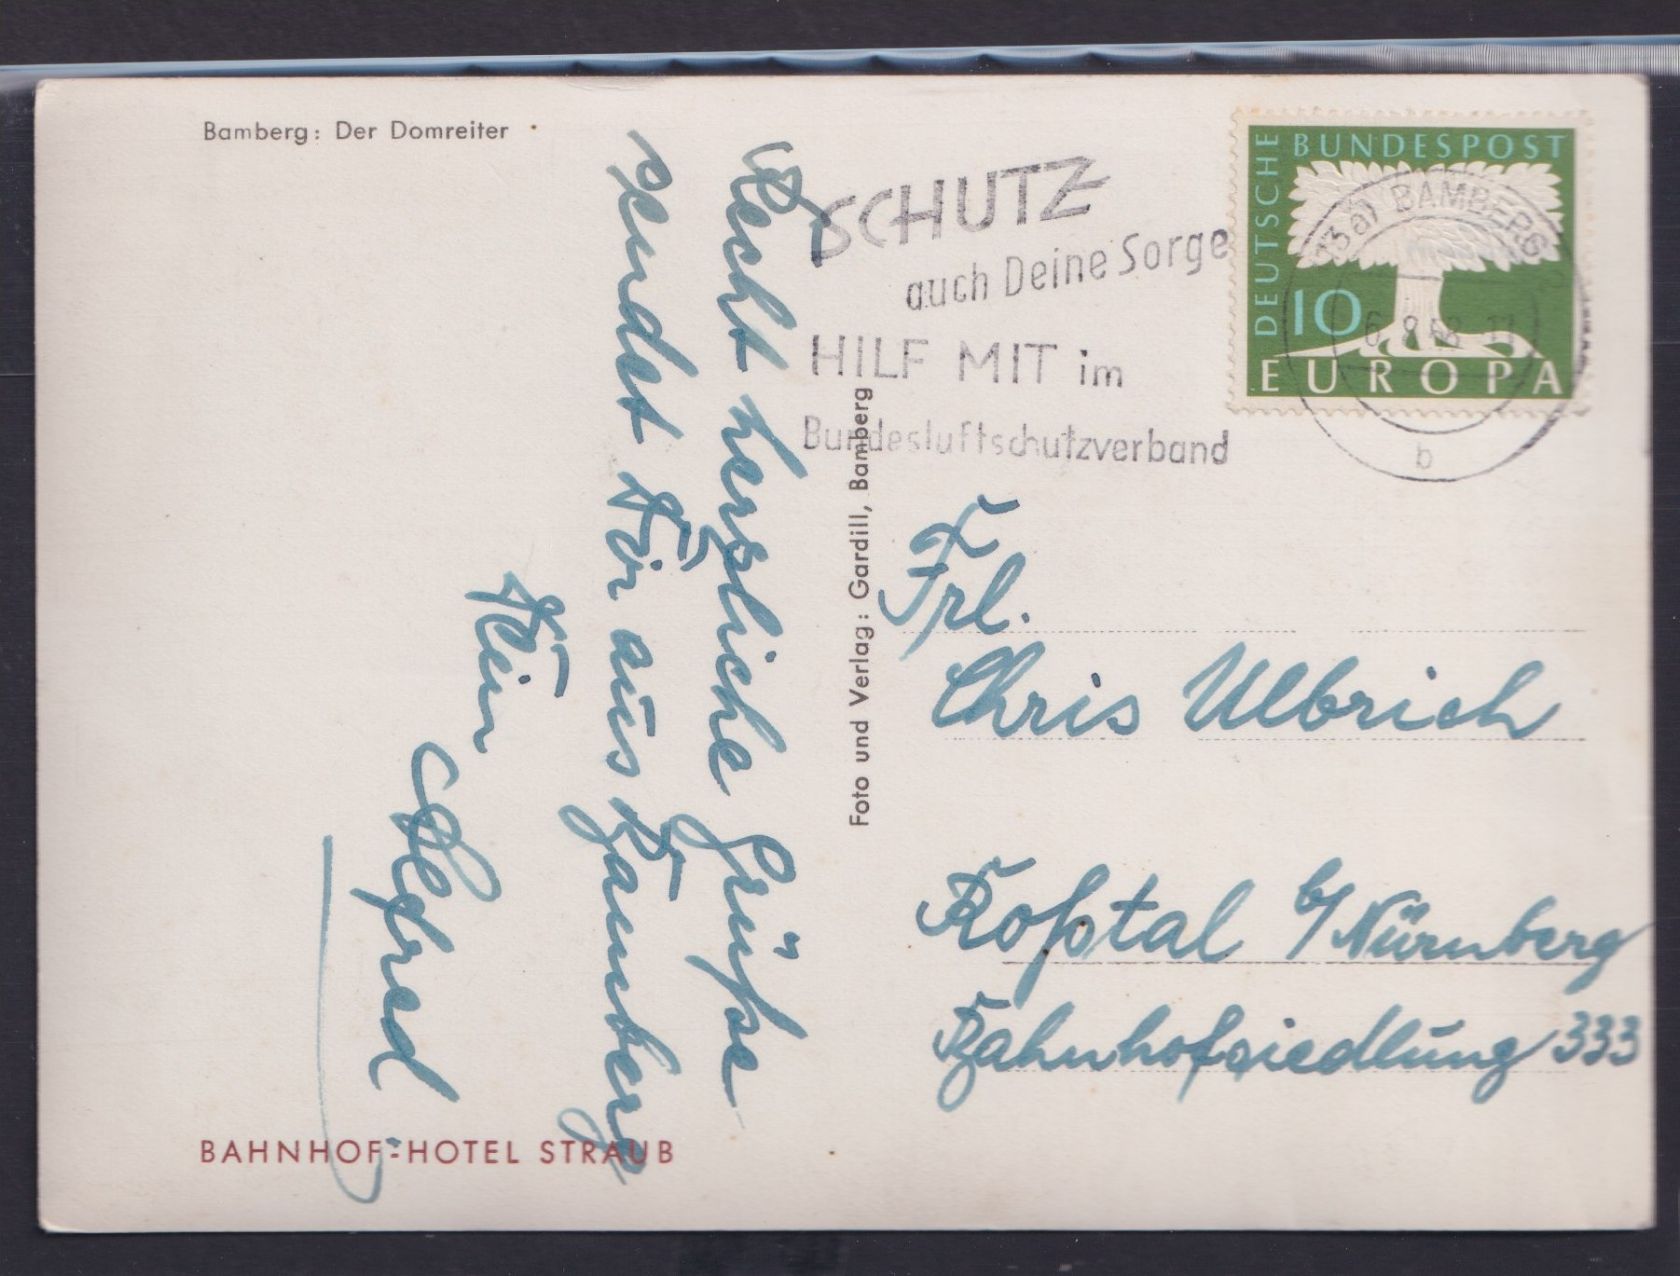 Bamberg: Der Domreiter
Recht herzliche Grüße
sendet Dir aus Bamberg
Dein
Alfred
BAHNHOF-HOTEL STRAUB
Foto und Verlag: Gardill, Bamberg
SCHUTZ
auch Deine Sorge
HILF MIT im
Bundesluftschutzverband
DEUTSCHE BUNDESPOST
10
EUROPA
(13a) BAMBERG
b
Frl.
Chris Ulbrich
Roßtal b/Nürnberg
Bahnhofsiedlung 333